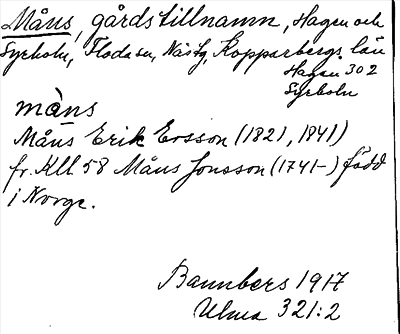 Måns, gårdstillnamn, Hagen och
Syrholn, Floda sn, Näsfg, Kopparbergs län
Hagen 302
Syrholn
màns
Måns Erik Ersson (1821, 1841)
fr. Kll 58 Måns Jonsson (1741-) född
i Norge.
Bannbers 1917
Ulma 321:2